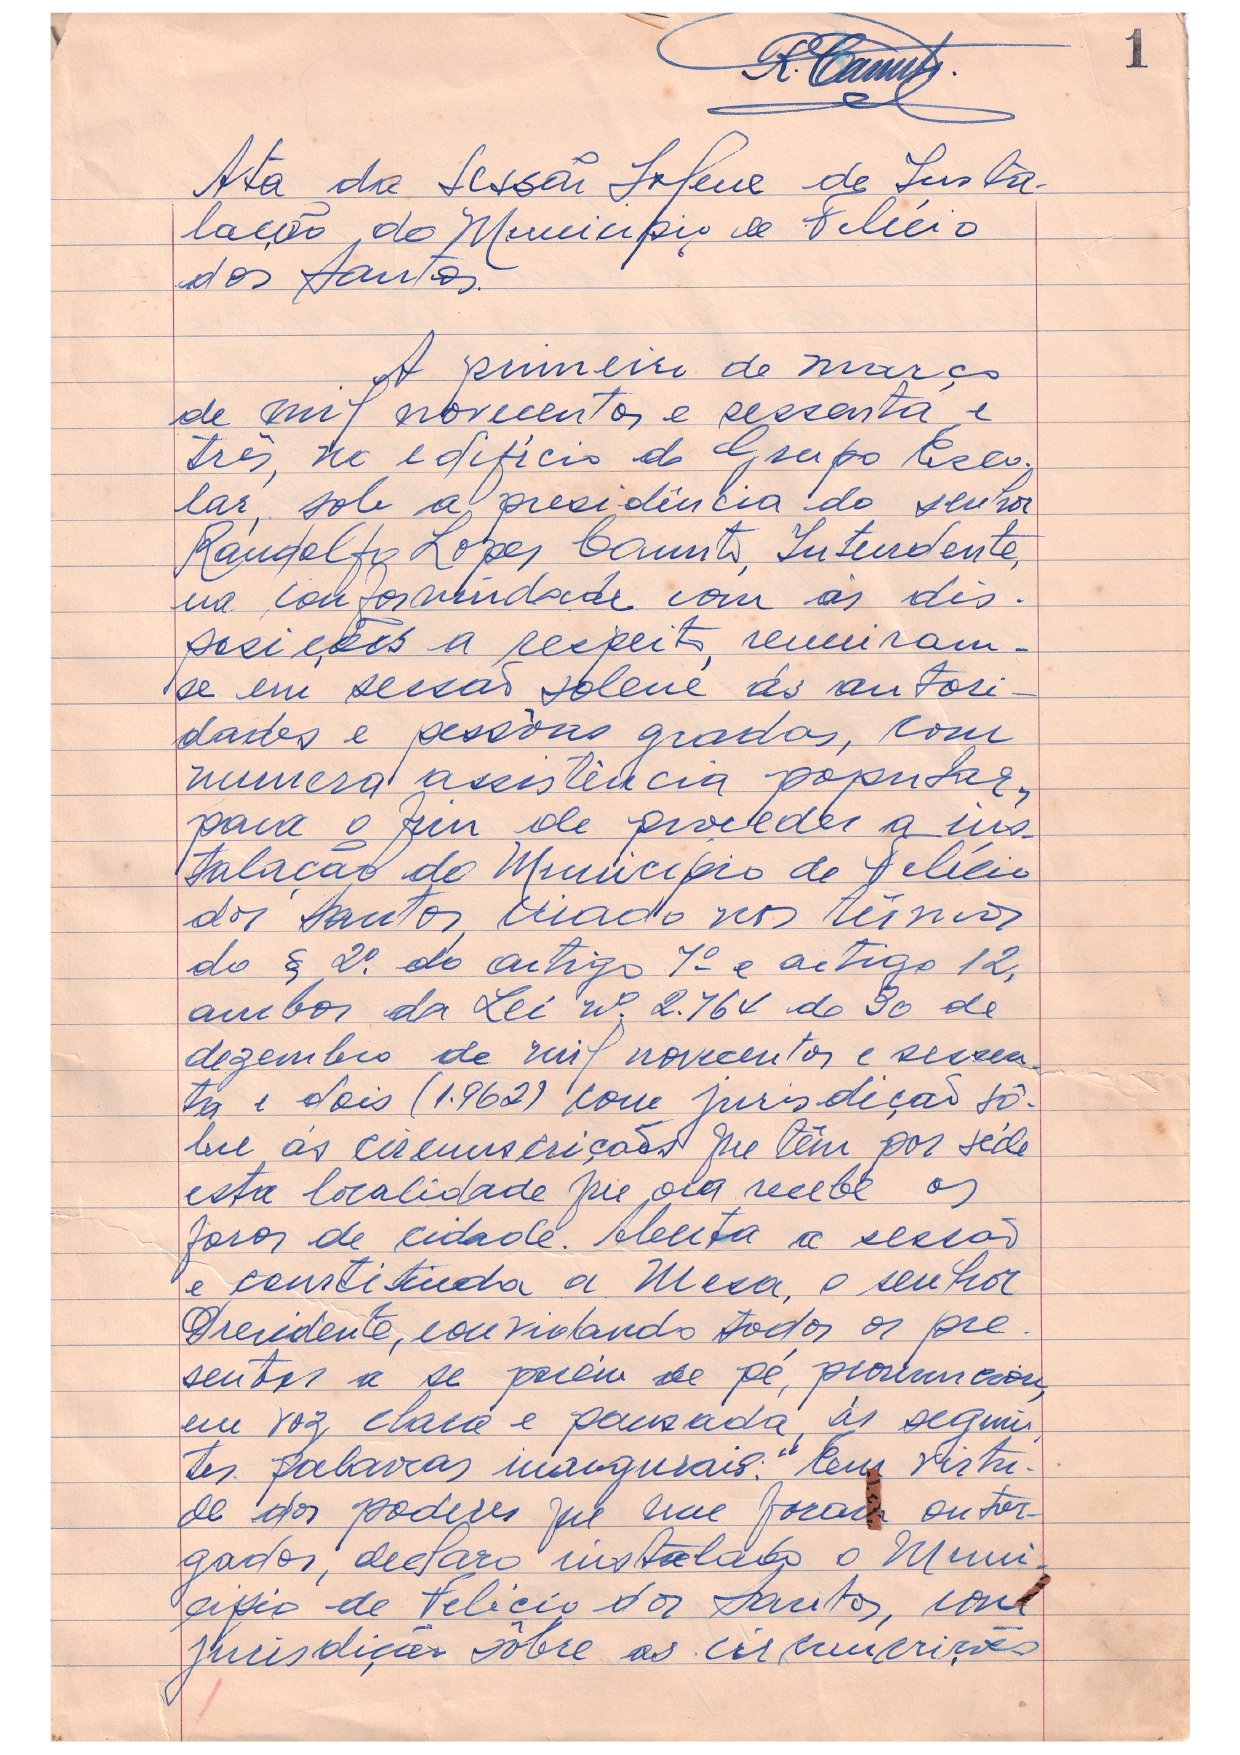 1
R. Canuto.
Ata da Sessão Solene de Insta-
lação do Municipio de Felício
dos Santos.
A primeiro de março
de mil novecentos e sessenta e
três, no edifício do Grupo Esco-
lar, sob a presidência do senhor
Randolfo Lopes Canuto, Intendente,
na conformindade com as dis-
posições a respeito, reuniram-
se em sessão solene as autori-
dades e pessôas gradas, com
numera assistência popular,
para o fim de proceder a ins-
talação do Municipio de Felício
dos Santos, criado nos têrmos
do § 2º. do artigo 1º e artigo 12,
ambos da Lei nº. 2.764 de 30 de
dezembro de mil novecentos e sessen-
ta e dois (1.962) com jurisdição sô-
bre as circunscrições que têm por séde
esta localidade que ora recebe os
foros de cidade. Aberta a sessão
e constituida a Mesa, o senhor
Presidente, convidando todos os pre-
sentes a se porém de pé, pronunciou,
em voz clara e pausada, as seguin-
tes palavras inaugurais: "Em virtu-
de dos poderes que me foram outor-
gados, declaro instalado o Muni-
cipio de Felício dos Santos, com
jurisdição sôbre as circunscrições